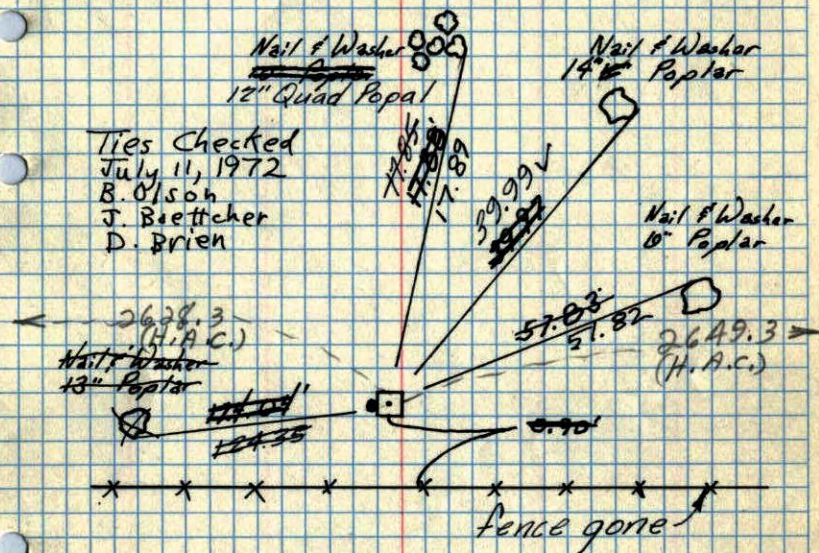 Nail & Washer
12" Quad Popal
Nail & Washer
14" Poplar
Ties Checked
July 11, 1972
B. Olson
J. Boettcher
D. Brien
17.85
17.89
39.99 ✓
Nail & Washer
Poplar
57.83
57.82
2628.3
(H.A.C.)
2649.3
(H.A.C.)
Nail & Washer
13" Poplar
124.35
0.90'
fence gone